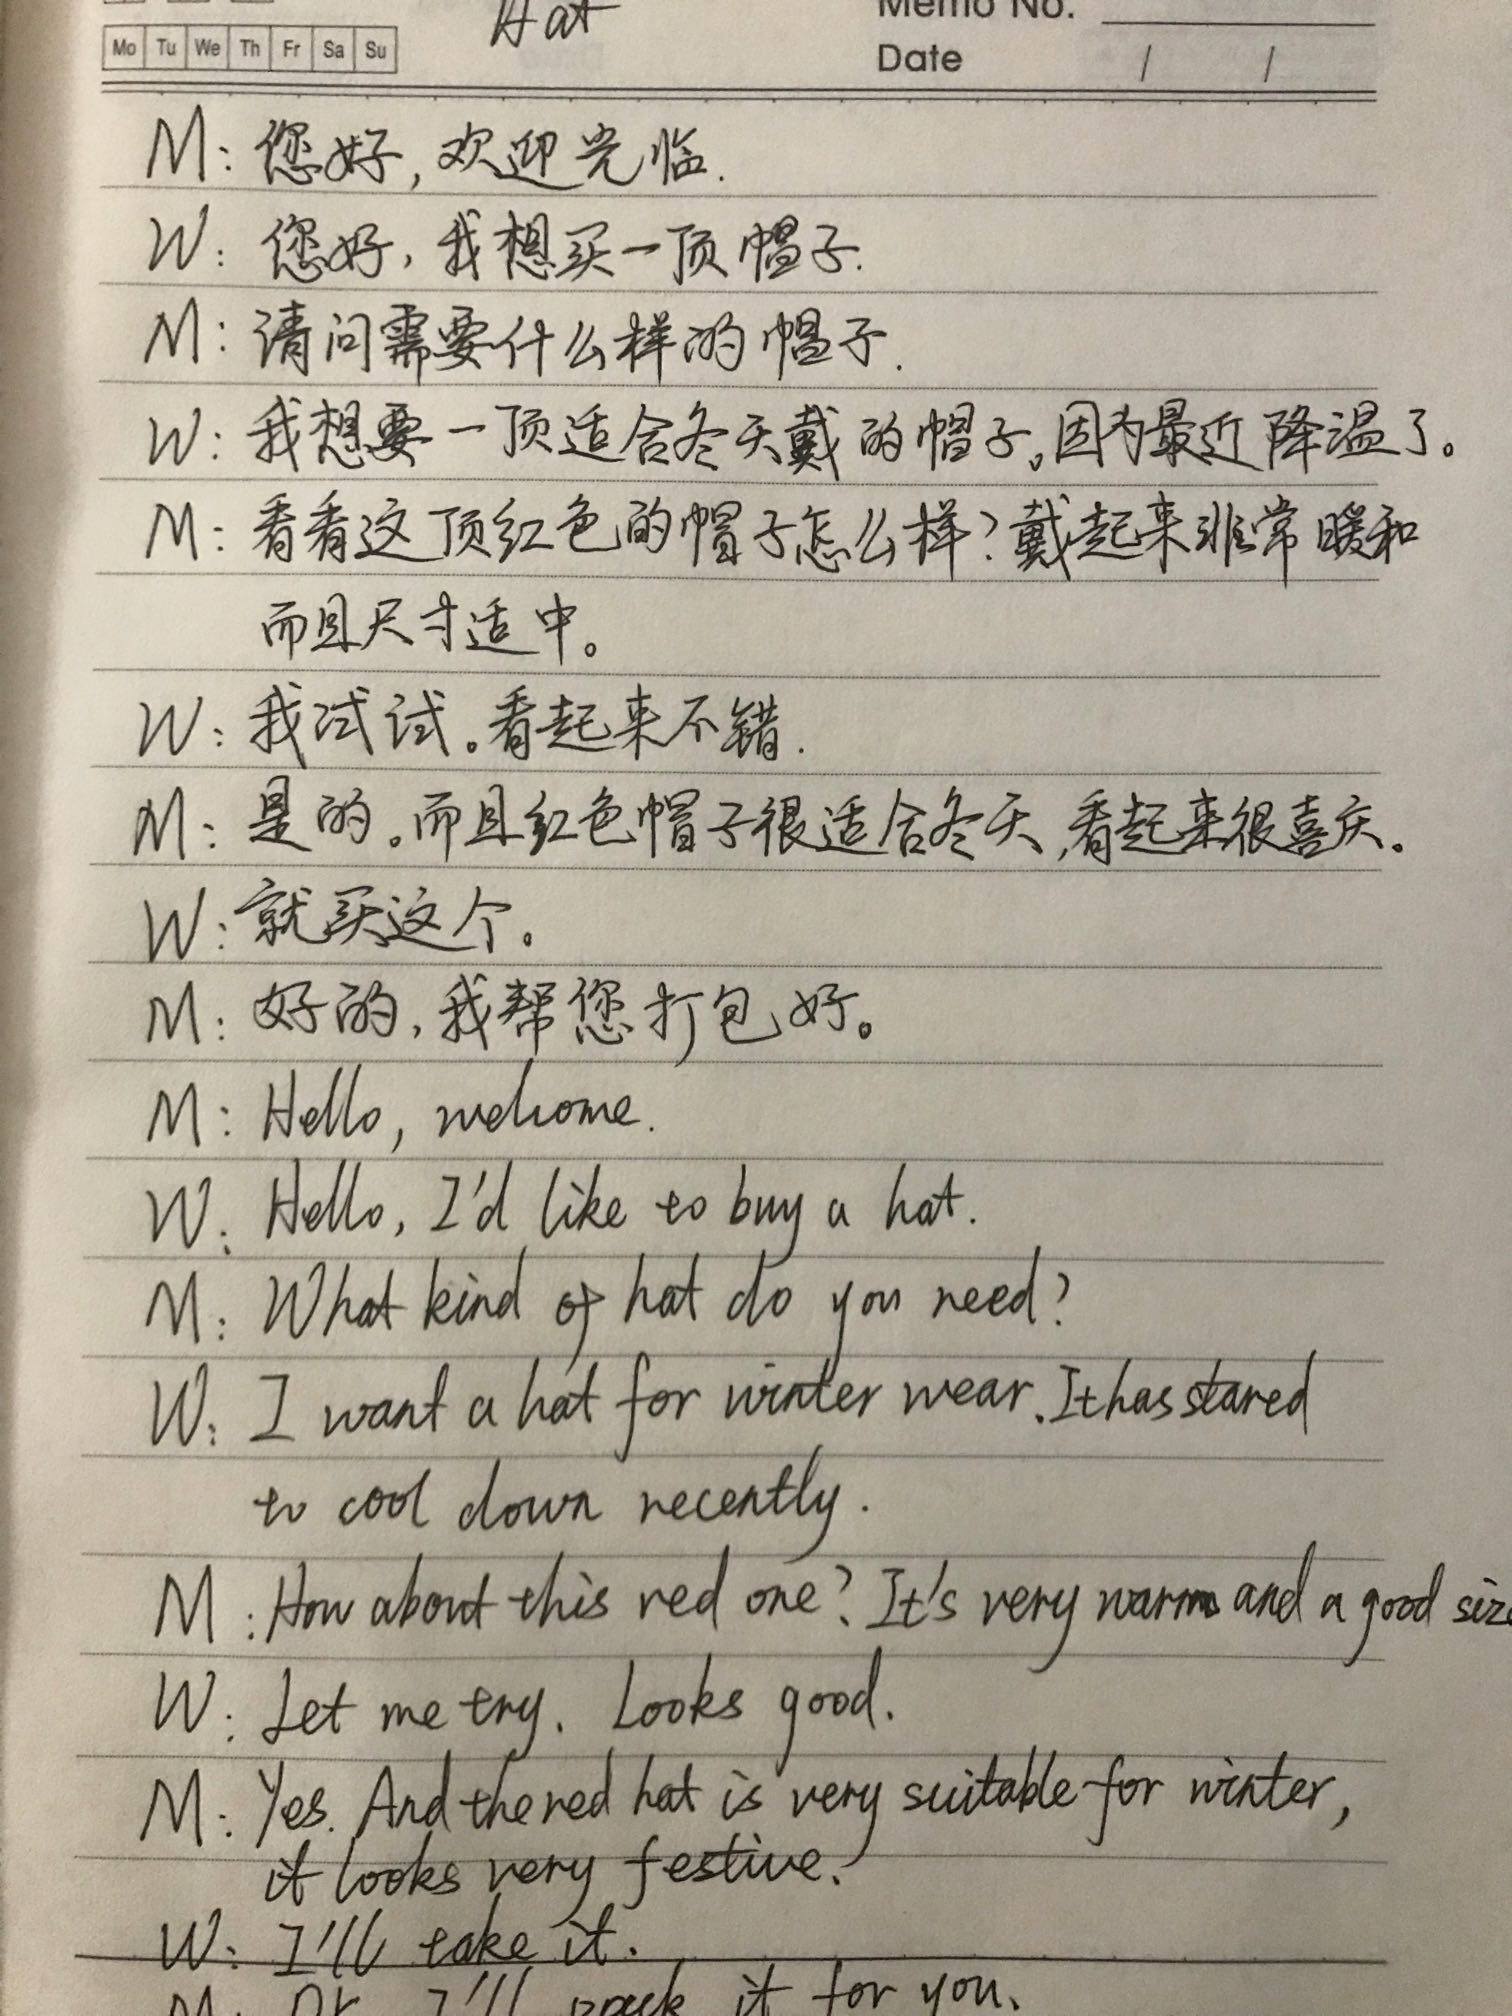 Hat
Memo No.
Mo Tu We Th Fr Sa Su
Date / /
M: 您好,欢迎光临.
W: 您好,我想买一顶帽子.
M: 请问需要什么样的帽子.
W: 我想要一顶适合冬天戴的帽子。因为最近降温了。
M: 看看这顶红色的帽子怎么样?戴起来非常暖和
而且尺寸适中。
W: 我试试。看起来不错.
M: 是的。而且红色帽子很适合冬天,看起来很喜庆。
W: 就买这个。
M: 好的,我帮您打包好。
M: Hello, welcome.
W: Hello, I'd like to buy a hat.
M: What kind of hat do you need?
W: I want a hat for winter wear. It has stared
to cool down recently.
M: How about this red one? It's very warm and a good size
W: Let me try. Looks good.
M: Yes. And the red hat is very suitable for winter,
it looks very festive.
W: I'll take it.
M: OK. I'll pack it for you.